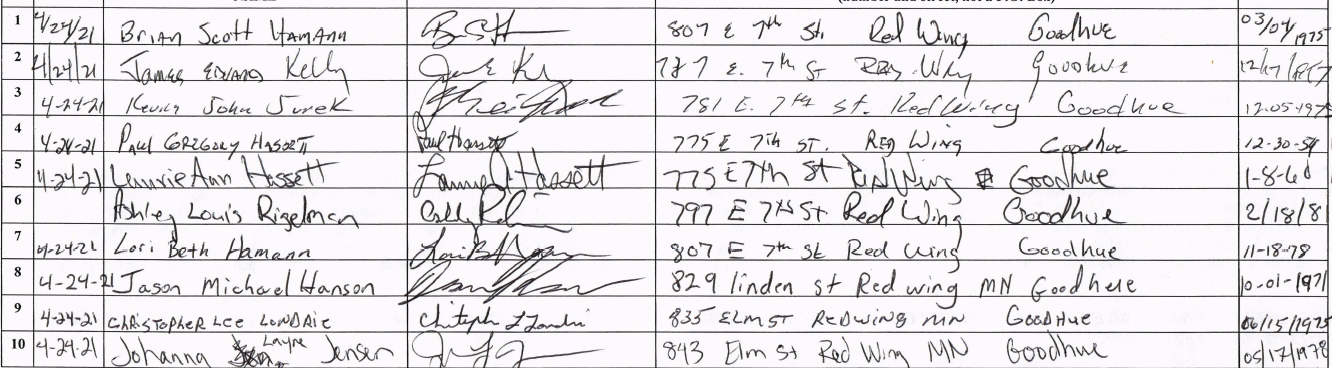 1 4/24/21 Brian Scott Hamann 807 E 7th St. Red Wing Goodhue 03/04/1975
2 4/24/21 James Edward Kelly 787 E. 7th St Red Wing Goodhue
3 4-24-21 Kevin John Jurek 781 E. 7th St. Red Wing Goodhue 12-05-1975
4 4-24-21 Paul Gregory Hassett Paul Hassett 775 E 7th ST. Red Wing Goodhue 12-30-54
5 4-24-21 Lannie Ann Hassett 775 E 7th St Red Wing Goodhue 1-8-60
6 Ashley Louis Rigelman 797 E 7th St Red Wing Goodhue 2/18/81
7 4-24-21 Lori Beth Hamann 807 E 7th St Red Wing Goodhue 11-18-78
8 4-24-21 Jason Michael Hanson 829 linden st Red wing MN Goodhue 10-01-1971
9 4-24-21 CHRISTOPHER LEE LONDRIE 835 ELM ST REDWING MN GOODHUE 06/15/1975
10 4-24-21 Johanna Layne Jensen 843 Elm St Red Wing MN Goodhue 05/17/1978